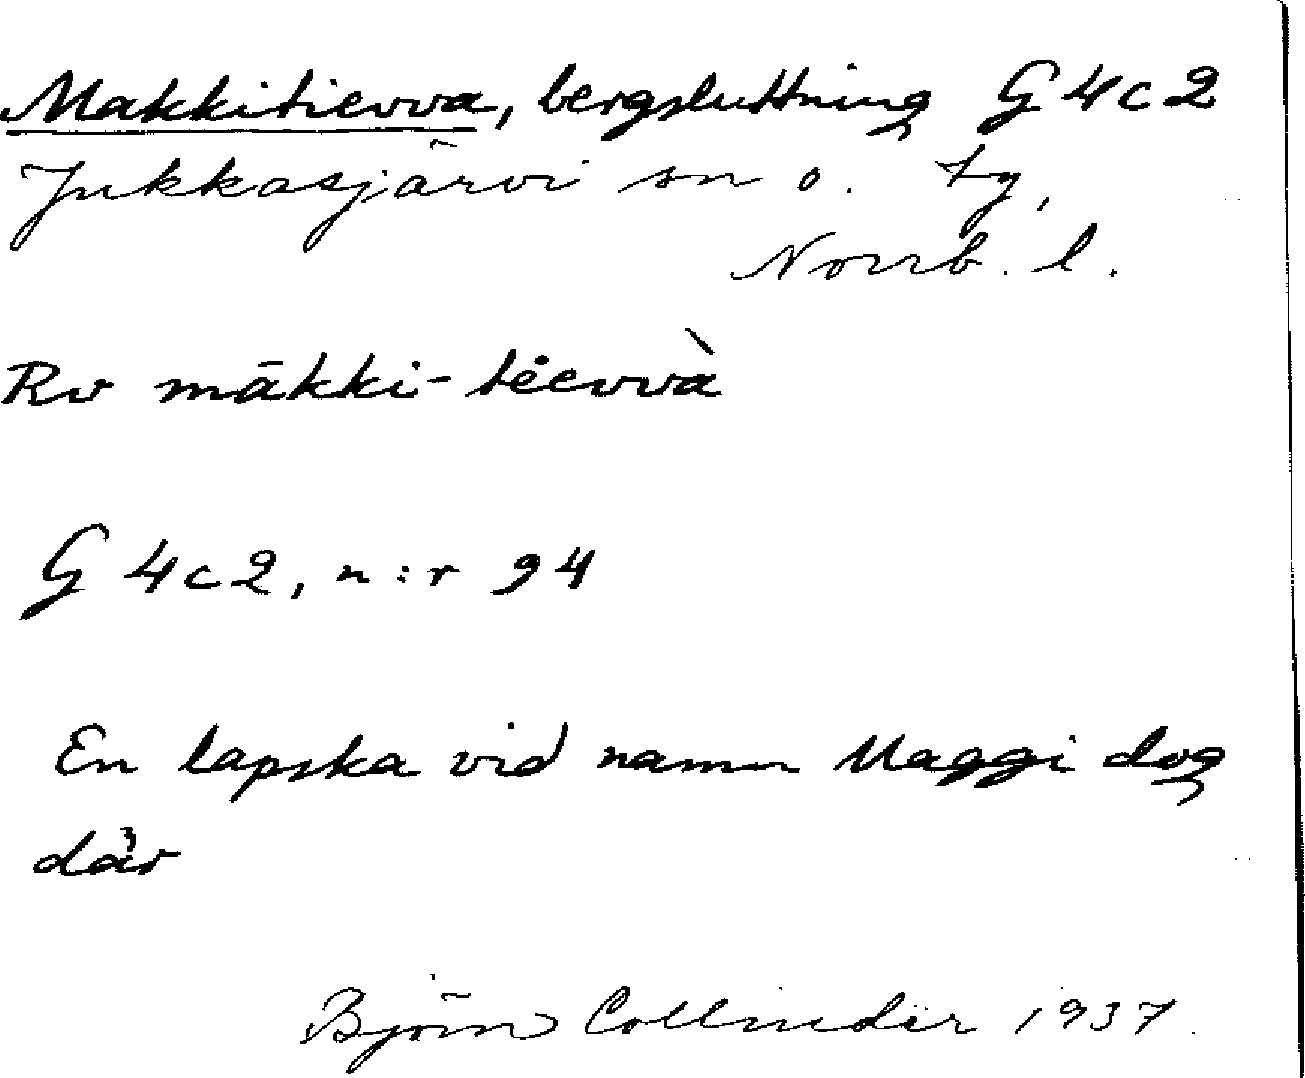 Makkitievva, bergsluttning G 4 c 2
Jukkasjärvi sn o. tg,
Norrb. l.
Rv mākki-tėevvà
G 4 c 2, n:r 94
En lapska vid namn Maggi dog
där
Björn Collinder 1937.